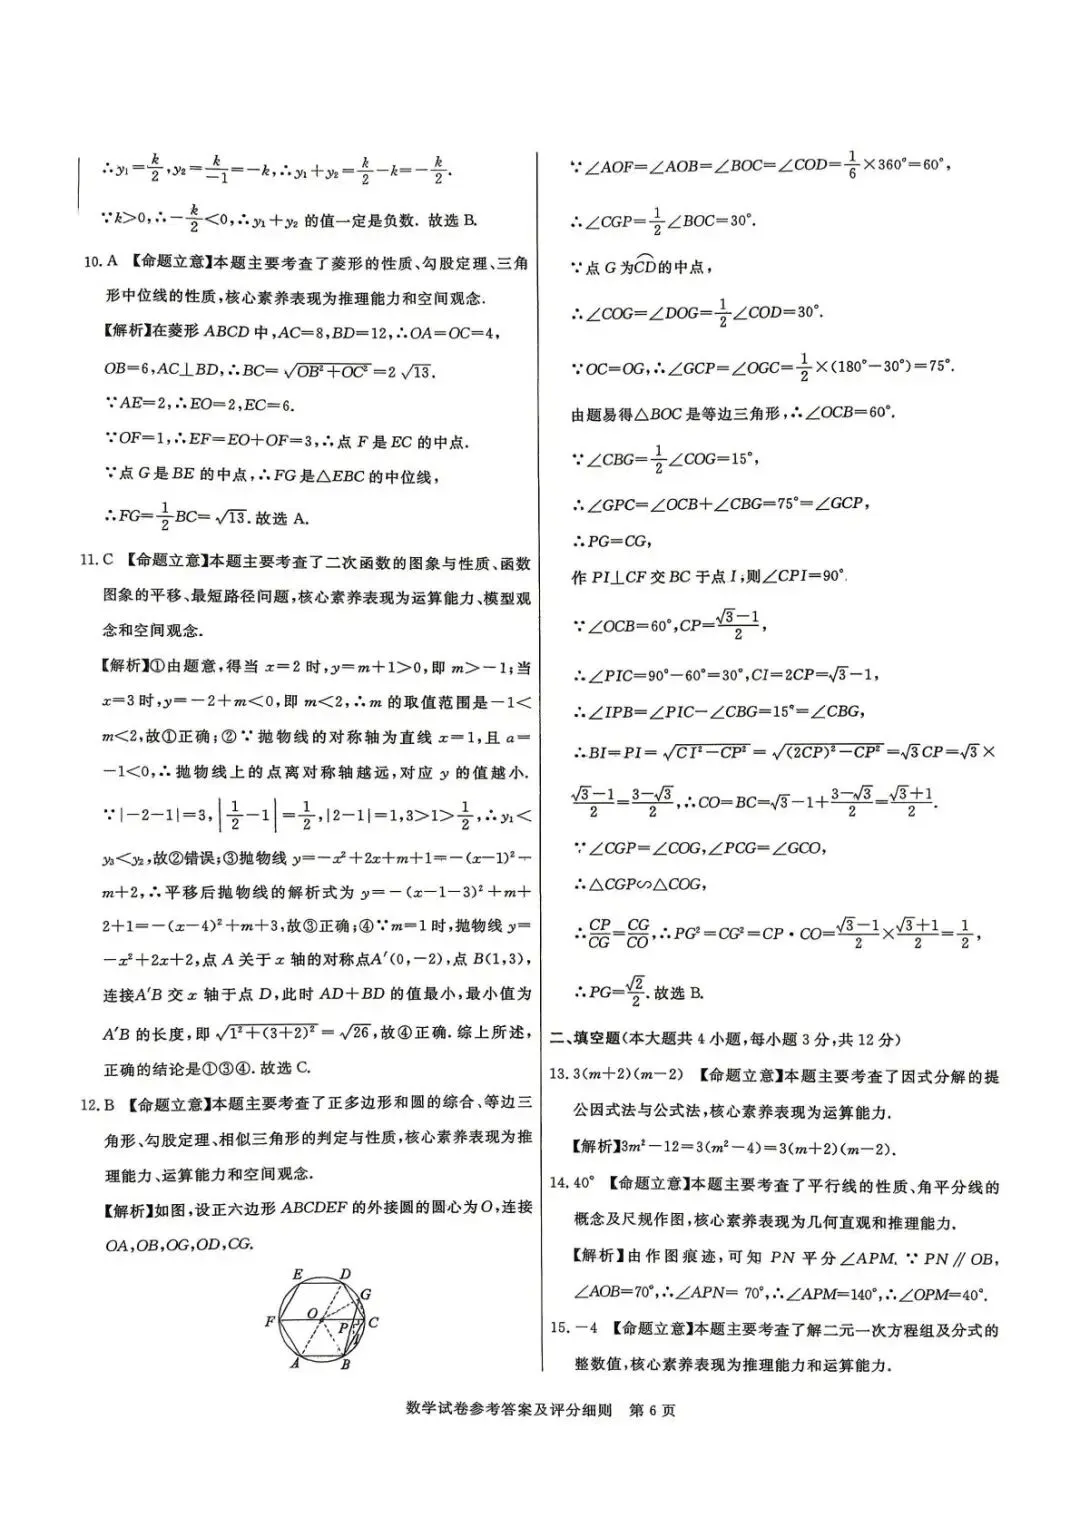 ∴y₁=k/2,y₂=k/-1=-k,∴y₁+y₂=k/2-k=-k/2.
∵k>0,∴-k/2<0,∴y₁+y₂ 的值一定是负数. 故选 B.
10. A 【命题立意】本题主要考查了菱形的性质、勾股定理、三角
形中位线的性质,核心素养表现为推理能力和空间观念.
【解析】在菱形 ABCD 中,AC=8,BD=12,∴OA=OC=4,
OB=6,AC⊥BD,∴BC=√(OB²+OC²)=2√13.
∵AE=2,∴EO=2,EC=6.
∵OF=1,∴EF=EO+OF=3,∴点 F 是 EC 的中点.
∵点 G 是 BE 的中点,∴FG 是△EBC 的中位线,
∴FG=1/2BC=√13.故选 A.
11. C 【命题立意】本题主要考查了二次函数的图象与性质、函数
图象的平移、最短路径问题,核心素养表现为运算能力、模型观
念和空间观念.
【解析】①由题意,得当 x=2 时,y=m+1>0,即 m>-1;当
x=3 时,y=-2+m<0,即 m<2,∴m 的取值范围是-1<
m<2,故①正确;②∵抛物线的对称轴为直线 x=1,且 a=
-1<0,∴抛物线上的点离对称轴越远,对应 y 的值越小.
∵|-2-1|=3,|1/2-1|=1/2,|2-1|=1,3>1>1/2,∴y₁<
y₃<y₂,故②错误;③抛物线 y=-x²+2x+m+1=-(x-1)²+
m+2,∴平移后抛物线的解析式为 y=-(x-1-3)²+m+
2+1=-(x-4)²+m+3,故③正确;④∵m=1 时,抛物线 y=
-x²+2x+2,点 A 关于 x 轴的对称点A′(0,-2),点 B(1,3),
连接A′B 交 x 轴于点 D,此时 AD+BD 的值最小,最小值为
A′B 的长度,即√(1²+(3+2)²)=√26,故④正确. 综上所述,
正确的结论是①③④. 故选 C.
12. B 【命题立意】本题主要考查了正多边形和圆的综合、等边三
角形、勾股定理、相似三角形的判定与性质,核心素养表现为推
理能力、运算能力和空间观念.
【解析】如图,设正六边形 ABCDEF 的外接圆的圆心为 O,连接
OA,OB,OG,OD,CG.
E D
G
F O P C
I
A B
∵∠AOF=∠AOB=∠BOC=∠COD=1/6×360°=60°,
∴∠CGP=1/2∠BOC=30°.
∵点 G 为C͡D的中点,
∴∠COG=∠DOG=1/2∠COD=30°.
∵OC=OG,∴∠GCP=∠OGC=1/2×(180°-30°)=75°.
由题易得△BOC 是等边三角形,∴∠OCB=60°.
∵∠CBG=1/2∠COG=15°,
∴∠GPC=∠OCB+∠CBG=75°=∠GCP,
∴PG=CG,
作 PI⊥CF 交 BC 于点 I,则∠CPI=90°.
∵∠OCB=60°,CP=(√3-1)/2,
∴∠PIC=90°-60°=30°,CI=2CP=√3-1,
∴∠IPB=∠PIC-∠CBG=15°=∠CBG,
∴BI=PI=√(CI²-CP²)=√((2CP)²-CP²)=√3CP=√3×
(√3-1)/2=(3-√3)/2,∴CO=BC=√3-1+(3-√3)/2=(√3+1)/2.
∵∠CGP=∠COG,∠PCG=∠GCO,
∴△CGP∽△COG,
∴CP/CG=CG/CO,∴PG²=CG²=CP·CO=(√3-1)/2×(√3+1)/2=1/2,
∴PG=√2/2.故选 B.
二、填空题(本大题共 4 小题,每小题 3 分,共 12 分)
13. 3(m+2)(m-2) 【命题立意】本题主要考查了因式分解的提
公因式法与公式法,核心素养表现为运算能力.
【解析】3m²-12=3(m²-4)=3(m+2)(m-2).
14. 40° 【命题立意】本题主要考查了平行线的性质、角平分线的
概念及尺规作图,核心素养表现为几何直观和推理能力.
【解析】由作图痕迹,可知 PN 平分∠APM. ∵PN∥OB,
∠AOB=70°,∴∠APN=70°,∴∠APM=140°,∴∠OPM=40°.
15. -4 【命题立意】本题主要考查了解二元一次方程组及分式的
整数值,核心素养表现为推理能力和运算能力.
数学试卷参考答案及评分细则 第 6 页